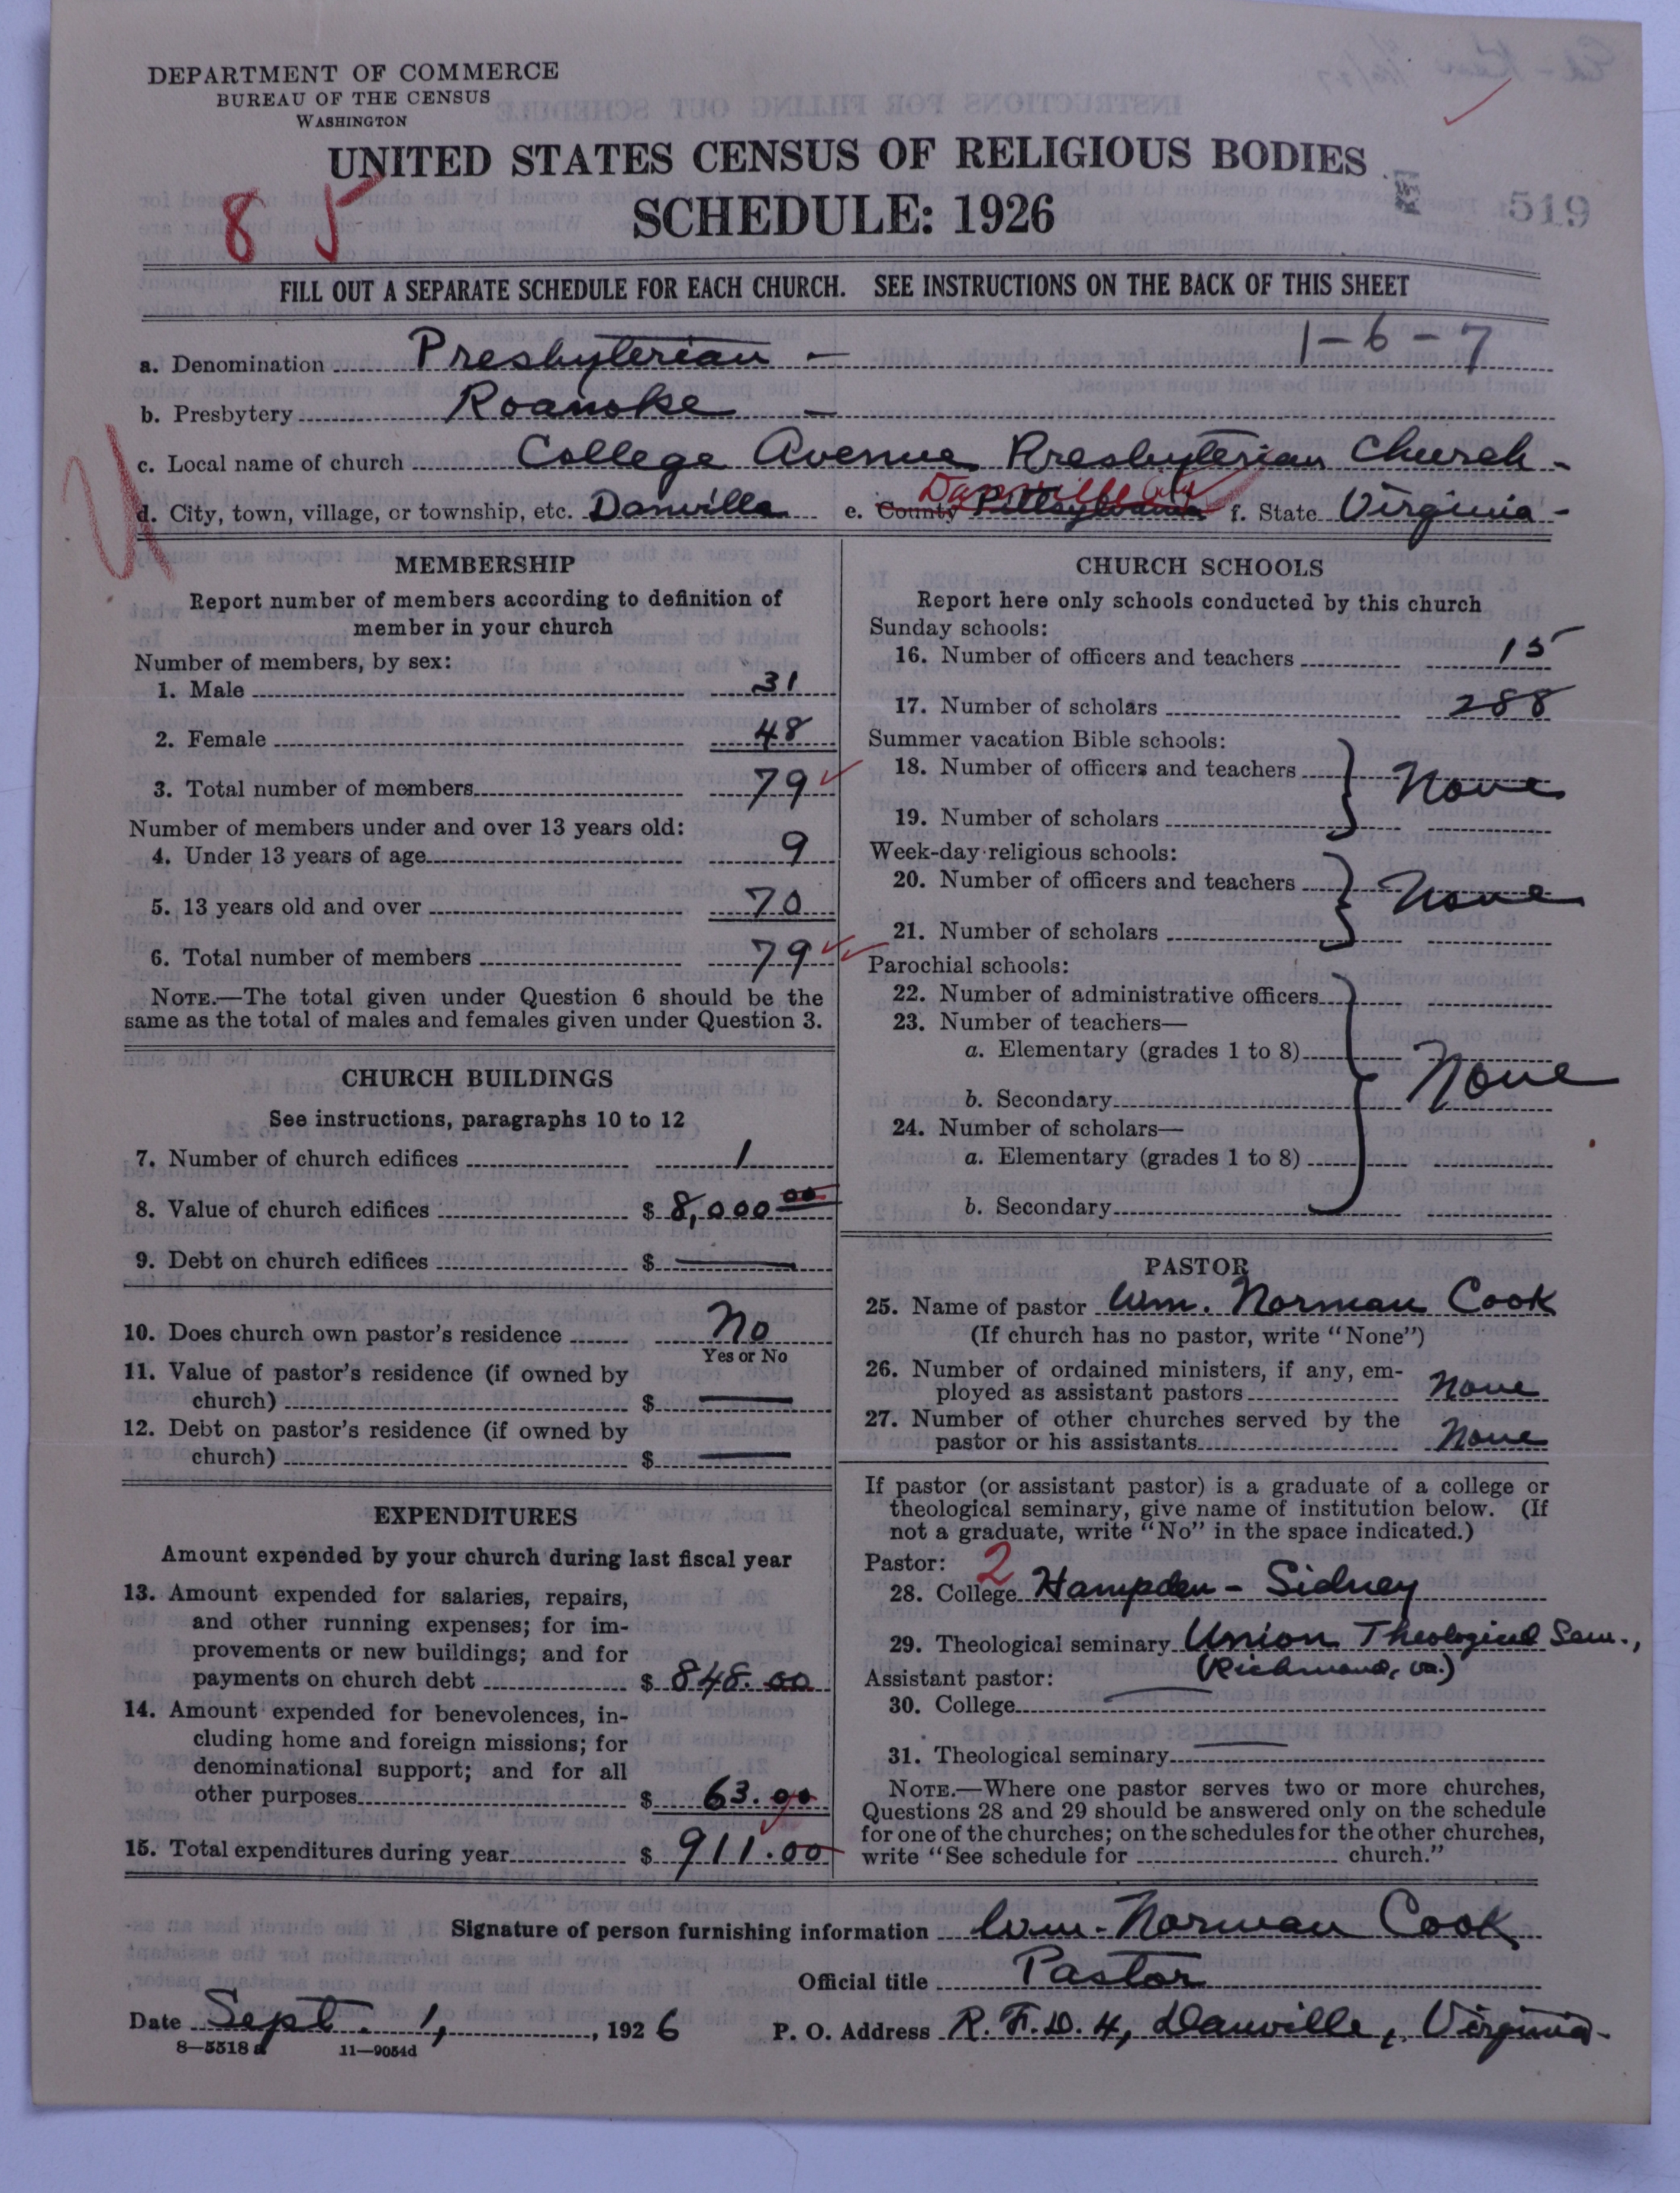 DEPARTMENT OF COMMERCE
BUREAU OF THE CENSUS
WASHINGTON
UNITED STATES CENSUS OF RELIGIOUS BODIES
SCHEDULE: 1926
8 5
519
FILL OUT A SEPARATE SCHEDULE FOR EACH CHURCH. SEE INSTRUCTIONS ON THE BACK OF THIS SHEET
a. Denomination Presbyterian – 1-6-7
b. Presbytery Roanoke –
c. Local name of church College Avenue Presbyterian Church -
d. City, town, village, or township, etc. Danville e. County Pittsylvania Danville City f. State Virginia -
MEMBERSHIP
Report number of members according to definition of
member in your church
Number of members, by sex:
1. Male 31
2. Female 48
3. Total number of members 79
Number of members under and over 13 years old:
4. Under 13 years of age 9
5. 13 years old and over 70
6. Total number of members 79
NOTE.—The total given under Question 6 should be the
same as the total of males and females given under Question 3.
CHURCH BUILDINGS
See instructions, paragraphs 10 to 12
7. Number of church edifices 1
8. Value of church edifices $ 8,000 00
9. Debt on church edifices $ —
10. Does church own pastor's residence No
Yes or No
11. Value of pastor's residence (if owned by
church) $ —
12. Debt on pastor's residence (if owned by
church) $ —
EXPENDITURES
Amount expended by your church during last fiscal year
13. Amount expended for salaries, repairs,
and other running expenses; for im-
provements or new buildings; and for
payments on church debt $ 848.00
14. Amount expended for benevolences, in-
cluding home and foreign missions; for
denominational support; and for all
other purposes $ 63.00
15. Total expenditures during year $ 911.00
CHURCH SCHOOLS
Report here only schools conducted by this church
Sunday schools:
16. Number of officers and teachers 15
17. Number of scholars 288
Summer vacation Bible schools:
18. Number of officers and teachers
None
19. Number of scholars
Week-day religious schools:
20. Number of officers and teachers
None
21. Number of scholars
Parochial schools:
22. Number of administrative officers
23. Number of teachers—
a. Elementary (grades 1 to 8)
None
b. Secondary
24. Number of scholars—
a. Elementary (grades 1 to 8)
b. Secondary
PASTOR
25. Name of pastor Wm. Norman Cook
(If church has no pastor, write "None")
26. Number of ordained ministers, if any, em-
ployed as assistant pastors None
27. Number of other churches served by the
pastor or his assistants None
If pastor (or assistant pastor) is a graduate of a college or
theological seminary, give name of institution below. (If
not a graduate, write "No" in the space indicated.)
Pastor: 2
28. College Hampden - Sidney
29. Theological seminary Union Theological Sem.,
(Richmond, Va.)
Assistant pastor:
30. College —
31. Theological seminary —
NOTE.—Where one pastor serves two or more churches,
Questions 28 and 29 should be answered only on the schedule
for one of the churches; on the schedules for the other churches,
write "See schedule for church."
Signature of person furnishing information Wm. Norman Cook
Official title Pastor
Date Sept. 1, 1926 P. O. Address R. F. D. 4, Danville, Virginia.
8—5518 a 11—9054d